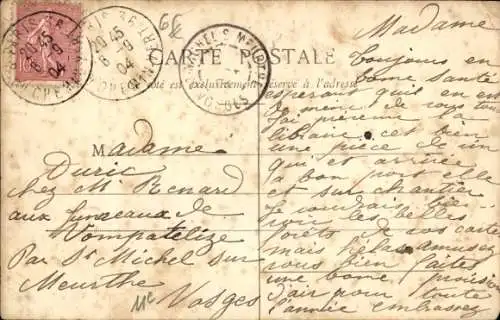 66
20 45
8 - 9
04
20 45
8 - 9
04
CARTE POSTALE
côté est exclusivement réservé à l'adresse
VOSGES
Madame
Duric
chez M Renard
aux fumeaux de
Vompatelize
Par St Michel sur
Meurthe
Vosges
Madame
Toujours en
bonne santé
esperant qu'il en est
de meme de vous tous
J'ai prévenu la
cet bien
une pièce de vin
qui et arrivée
a bon port elle
et sur chantier
Je voudrais bien
voir les belles
forêts de vos cartes
mais hélas amusez
vous bien faites
une bonne provision
d'air pour toute
l'année embrassez